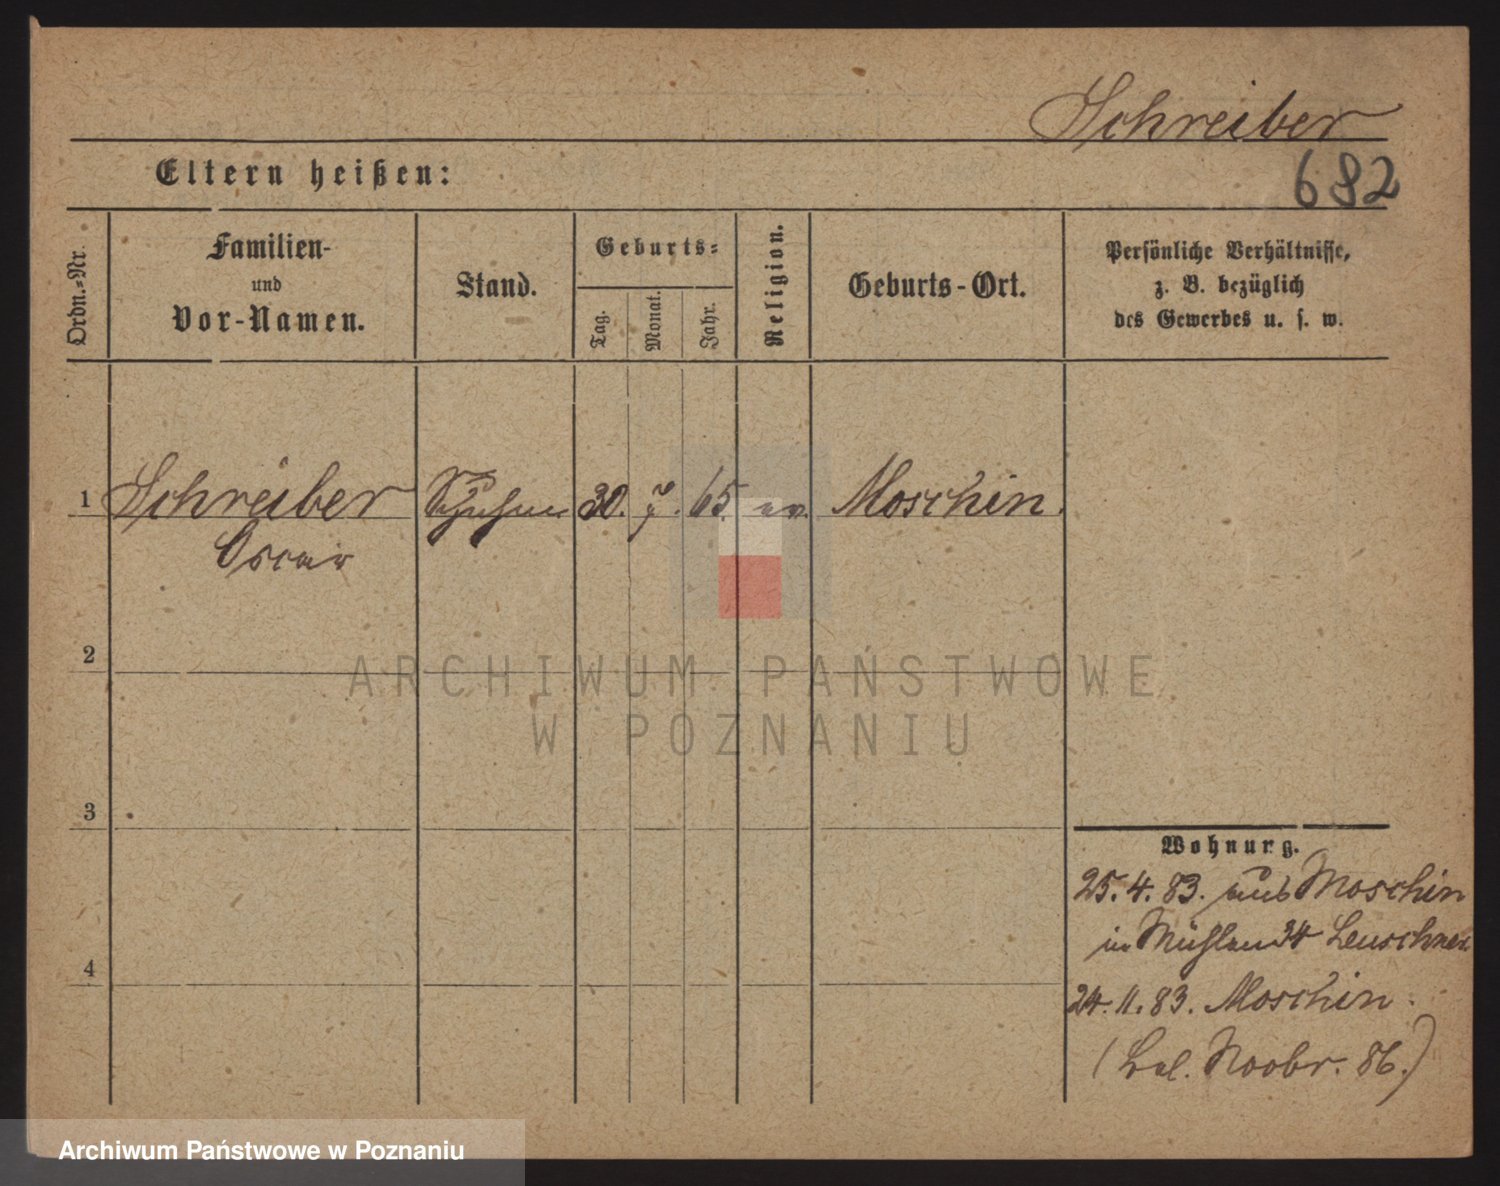 Schreiber
682
Eltern heißen:
Ordn.=Nr.
Familien-
und
Vor-Namen.
Stand.
Geburts=
Tag.
Monat.
Jahr.
Religion.
Geburts-Ort.
Persönliche Verhältnisse,
z. B. bezüglich
des Gewerbes u. s. w.
1 Schreiber 30. 7. 65. ev. Moschin.
Oscar
2
3
4
Wohnung.
25. 4. 83. aus Moschin
in Mühlen 34 Leuschner
24. 11. 83. Moschin.
Novbr. 86.)
ARCHIWUM PAŃSTWOWE
W POZNANIU
Archiwum Państwowe w Poznaniu